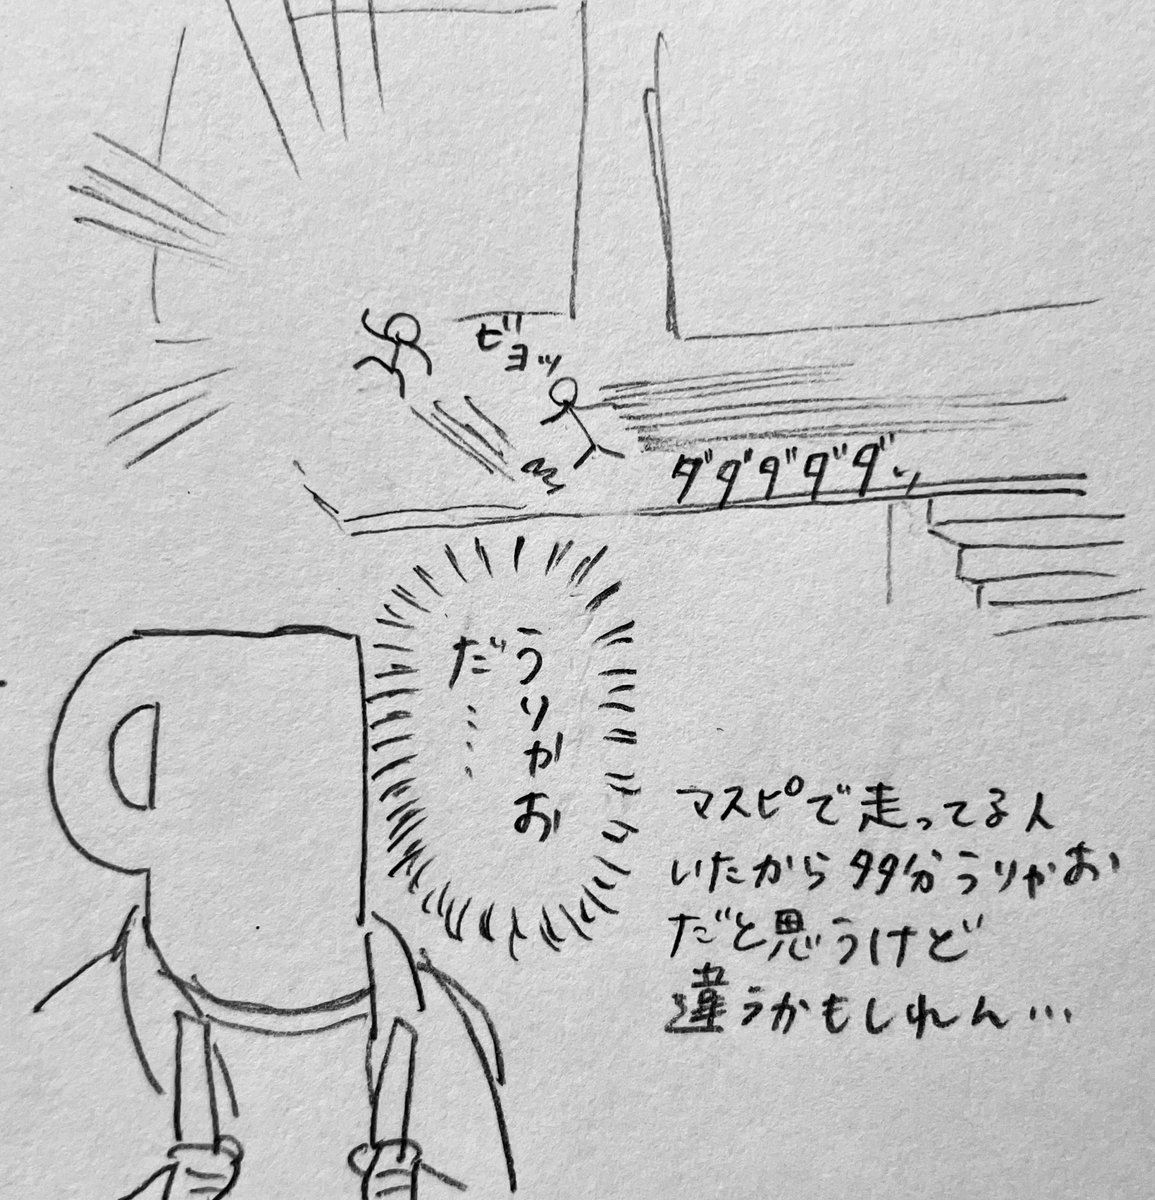 ビョッ
ダダダダダッ
うりかお
だ……
マスピで走ってる人
いたから多分うりかお
だと思うけど
違うかもしれん…